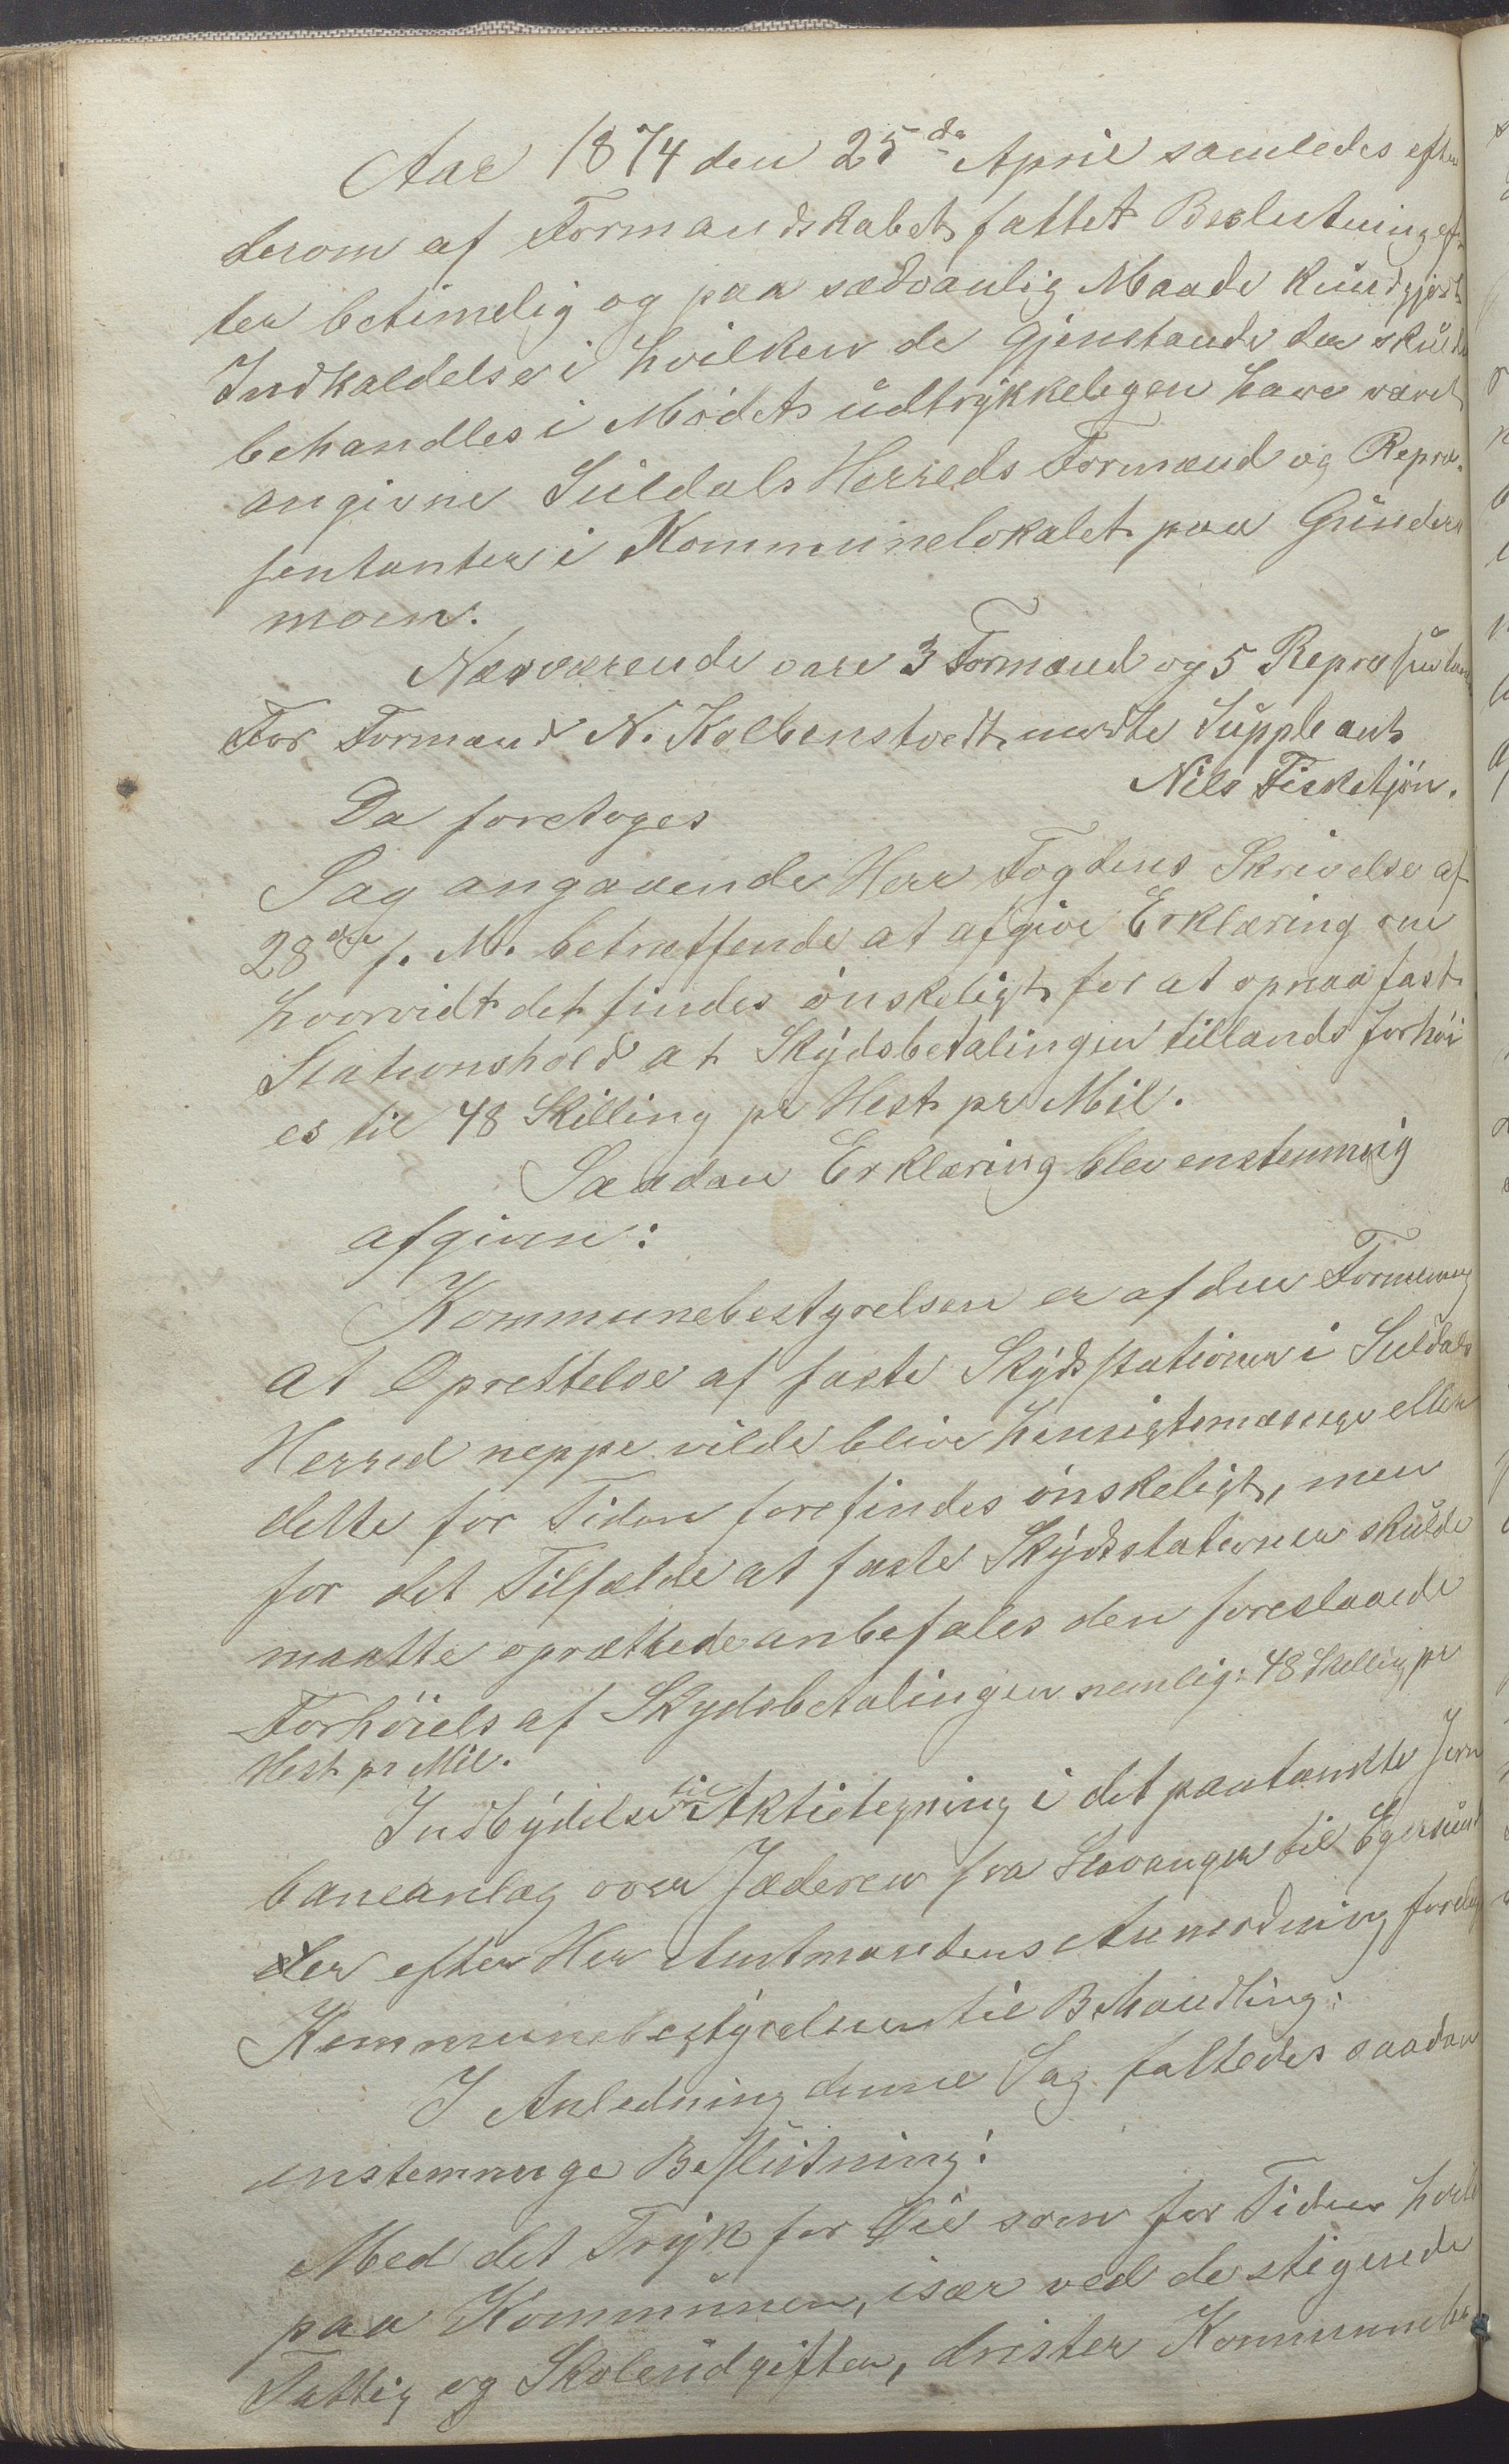 Aar 1874 den 25de April samledes efter
derom af Formandskabet fattet Beslutning ef-
ter betimelig og paa sædvanlig Maade kundgjort
Indkaldelse i hvilken de Gjenstande der skulde
behandles i Mødet udtrykkeligen have været
angivne Suldals Herreds Formænd og Repræ-
sentanter i Kommunelokalet paa Gunders
moen.
Nærværende vare 3 Formænd og 5 Repræsentant
For Formand N. Kolbenstvedt mødte Suppleant
Nils Fisketjön.
Da foretoges
Sag angaaende Herr Fogdens Skrivelse af
28de f. M. betræffende at afgive Erklæring om
hvorvidt det findes önskeligt for at opnaa fast
Stationshold at Skydsbetalingen tillands forhöi
es til 48 Skilling pr Hest pr Mil.
Saadan Erklæring blev enstemmig
afgiven:
Kommunebestyrelsen er af den Formening
at Oprettelse af faste Skydsstationer i Suldals
Herred neppe vilde blive hensigtsmæssige eller
dette for Tiden forefindes önskeligt, men
for det Tilfælde at faste Skydsstationer skulde
maatte oprættede anbefales den foreslaaede
Forhöiels af Skydsbetalingen nemlig: 48 Skilling pr
Hest pr Mil.
Indbydelse til Aktietegning i det paatænkte Jern
baneanlæg over Jæderen fra Stavanger til Egersund
der efter Her Amtmandens Anmodning forelag
Kommunebestyrelsen til Behandling:
I Anledning denne Sag fattedes saadan
enstemmige Beslutning:
Med det Tryk for Öie som for Tiden hvile
paa Kommunen, især ved de stigende
Fattig og Skoleudgifter, drister Kommunebe